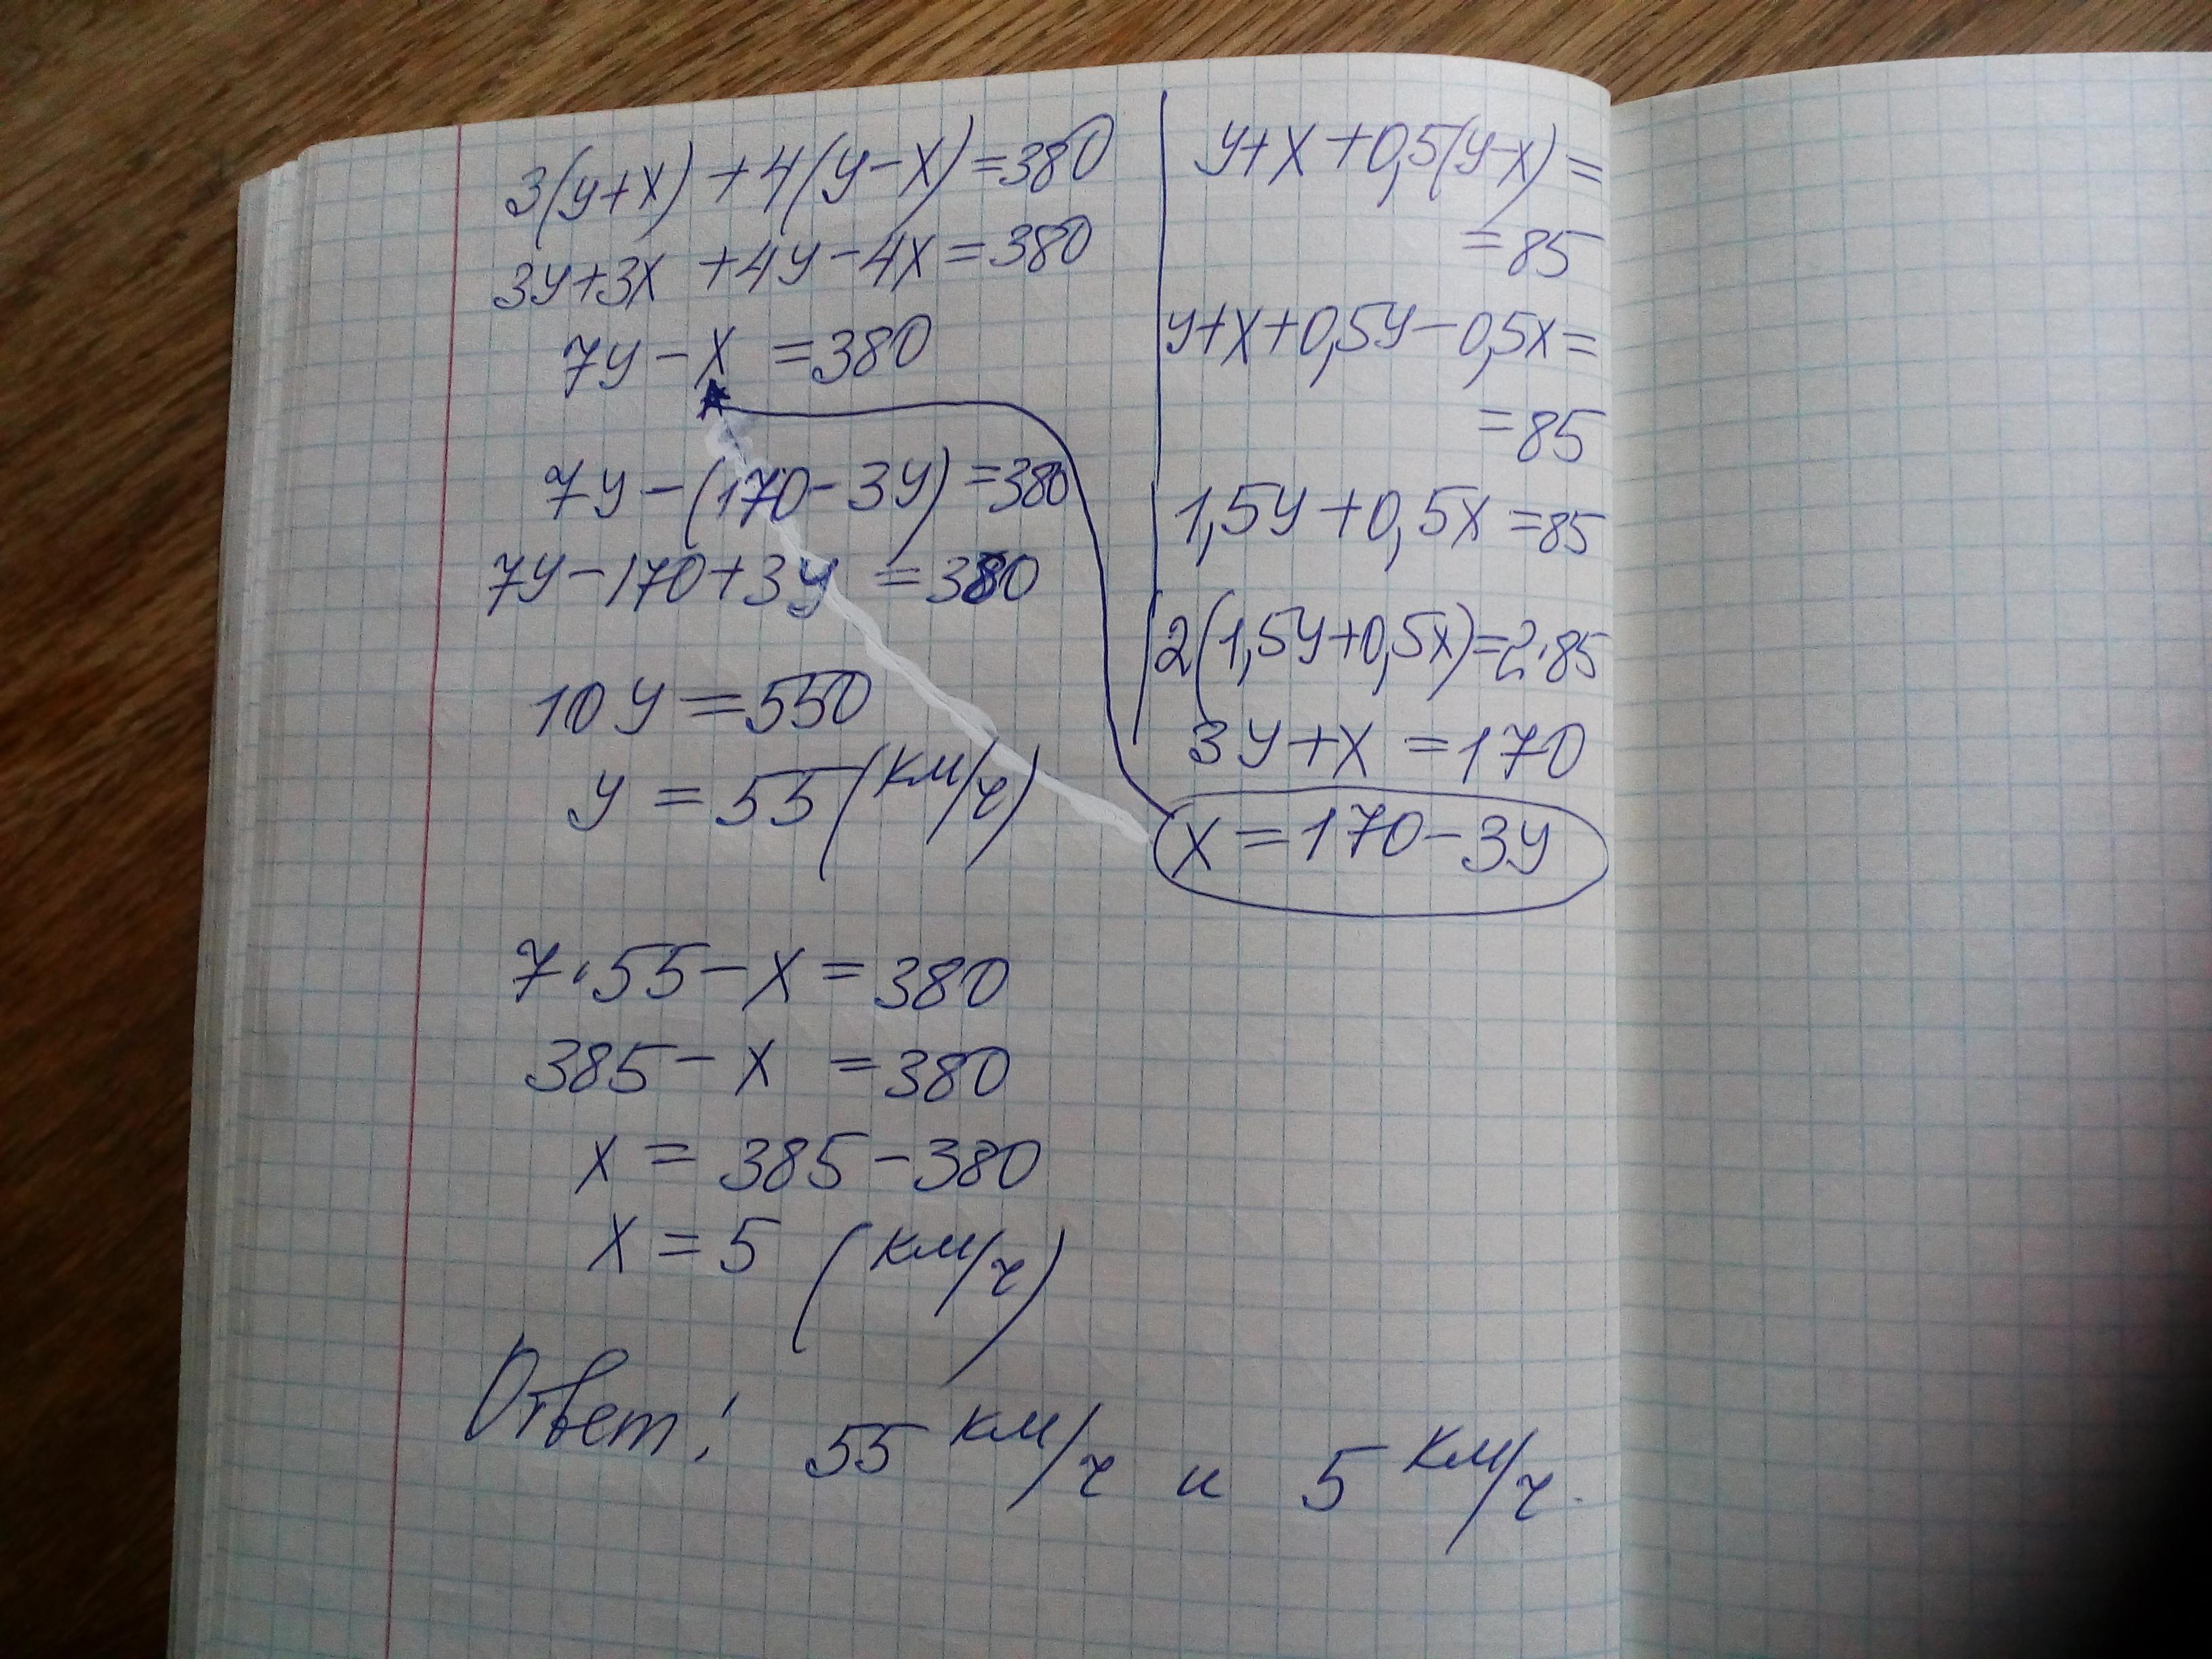 3(y+x)+4(y-x)=380
3y+3x+4y-4x=380
7y-x=380
7y-(170-3y)=380
7y-170+3y=380
10y=550
y=55(км/ч)
7·55-x=380
385-x=380
x=385-380
x=5 (км/ч)
y+x+0,5(y-x)=
=85
y+x+0,5y-0,5x=
=85
1,5y+0,5x=85
2(1,5y+0,5x)=2·85
3y+x=170
x=170-3y
Ответ: 55 км/ч и 5 км/ч.